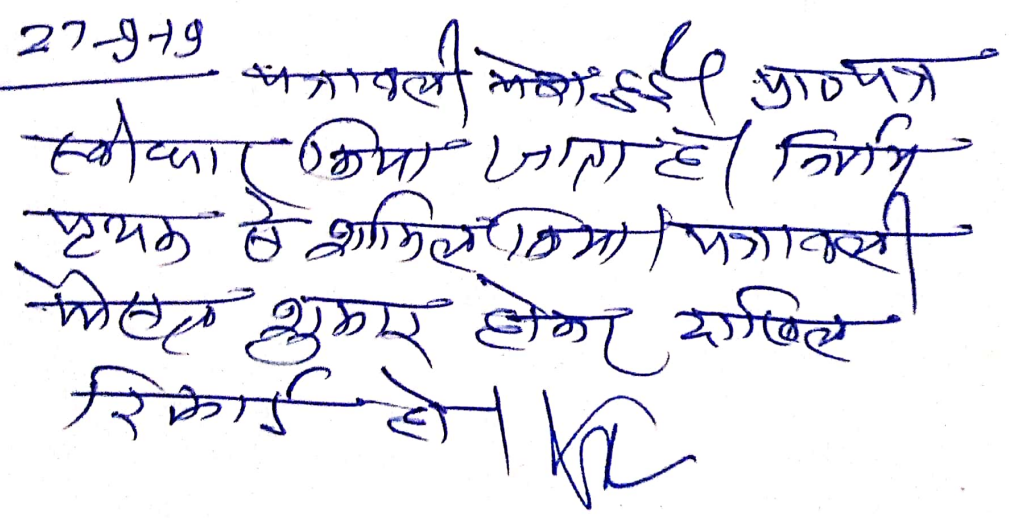 27-9-19
पत्रावली पेश हुई। प्रा०पत्र
स्वीकार किया जाता है। निर्णय
पृथक से शामिल किया। पत्रावली
फैसल शुमार होकर दाखिल
रिकार्ड हो।